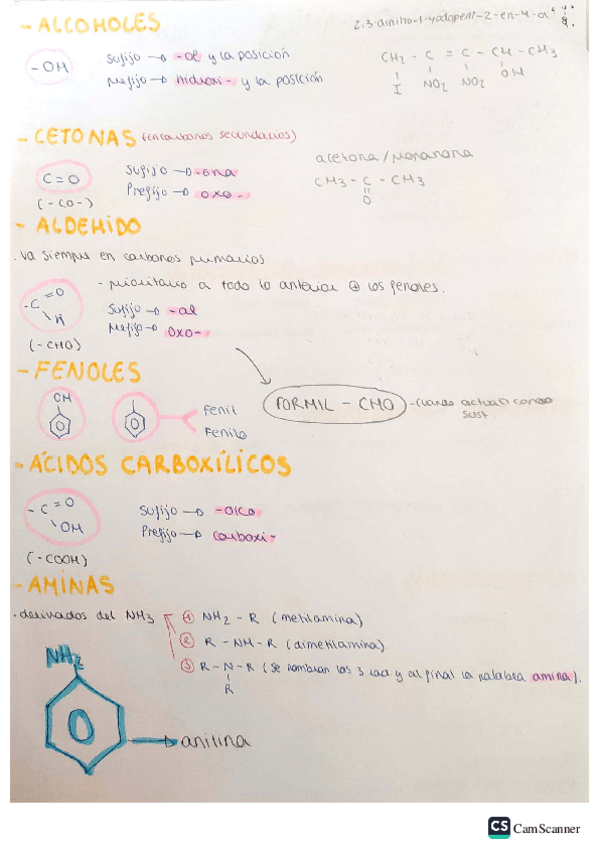 - ALCOHOLES
2,3-dinitro-1-yodopent-2-en-4-ol
-OH
Sufijo → -ol y la posición
Prefijo → hidroxi- y la posición
CH2 - C = C - CH - CH3
I NO2 NO2 OH
- CETONAS (en carbonos secundarios)
C=O
(-CO-)
Sufijo → -ona
Prefijo → oxo-
acetona/propanona
CH3 - C - CH3
O
- ALDEHIDO
. va siempre en carbonos primarios
- prioritario a todo lo anterior @ los fenoles.
-C =O
H
(-CHO)
Sufijo → -al
Prefijo → oxo-
- FENOLES
OH
Fenil
Fenilo
FORMIL - CHO - cuando actua como
sust.
- ÁCIDOS CARBOXÍLICOS
-C =O
OH
(-COOH)
Sufijo → -oico
Prefijo → carboxi-
- AMINAS
. derivados del NH3
① NH2 - R (metilamina)
② R - NH - R (dimetilamina)
③ R - N - R (se nombran los 3 rad. y al final la palabra amina).
R
NH2
→ anilina
CS CamScanner